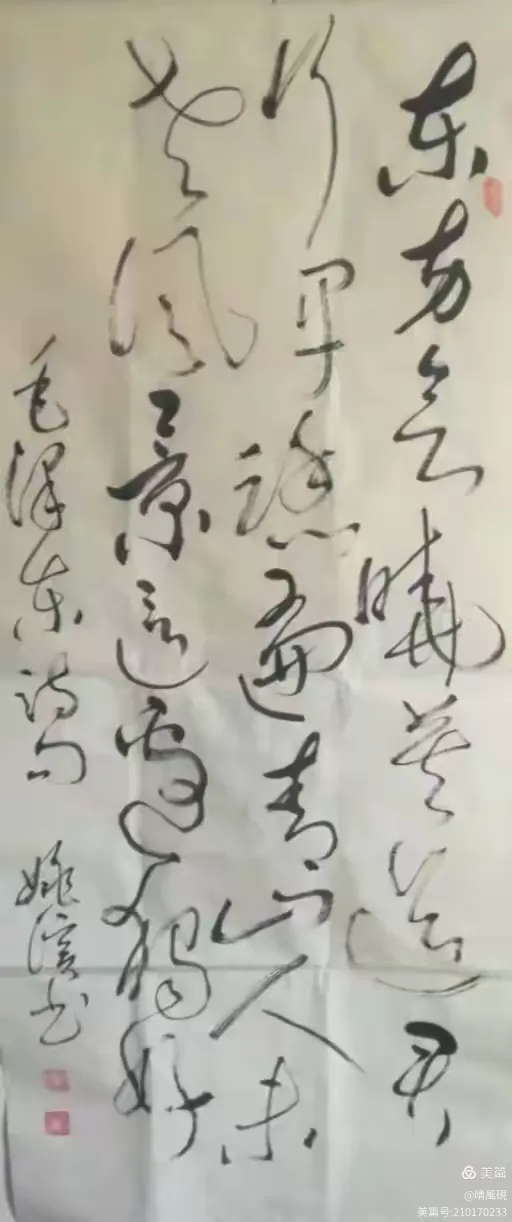 东方欲曉莫道君
行早踏遍青山人未
老風景這邊獨好
毛澤东詩句 姚书
美篇
@晴風硯
美篇号:210170233